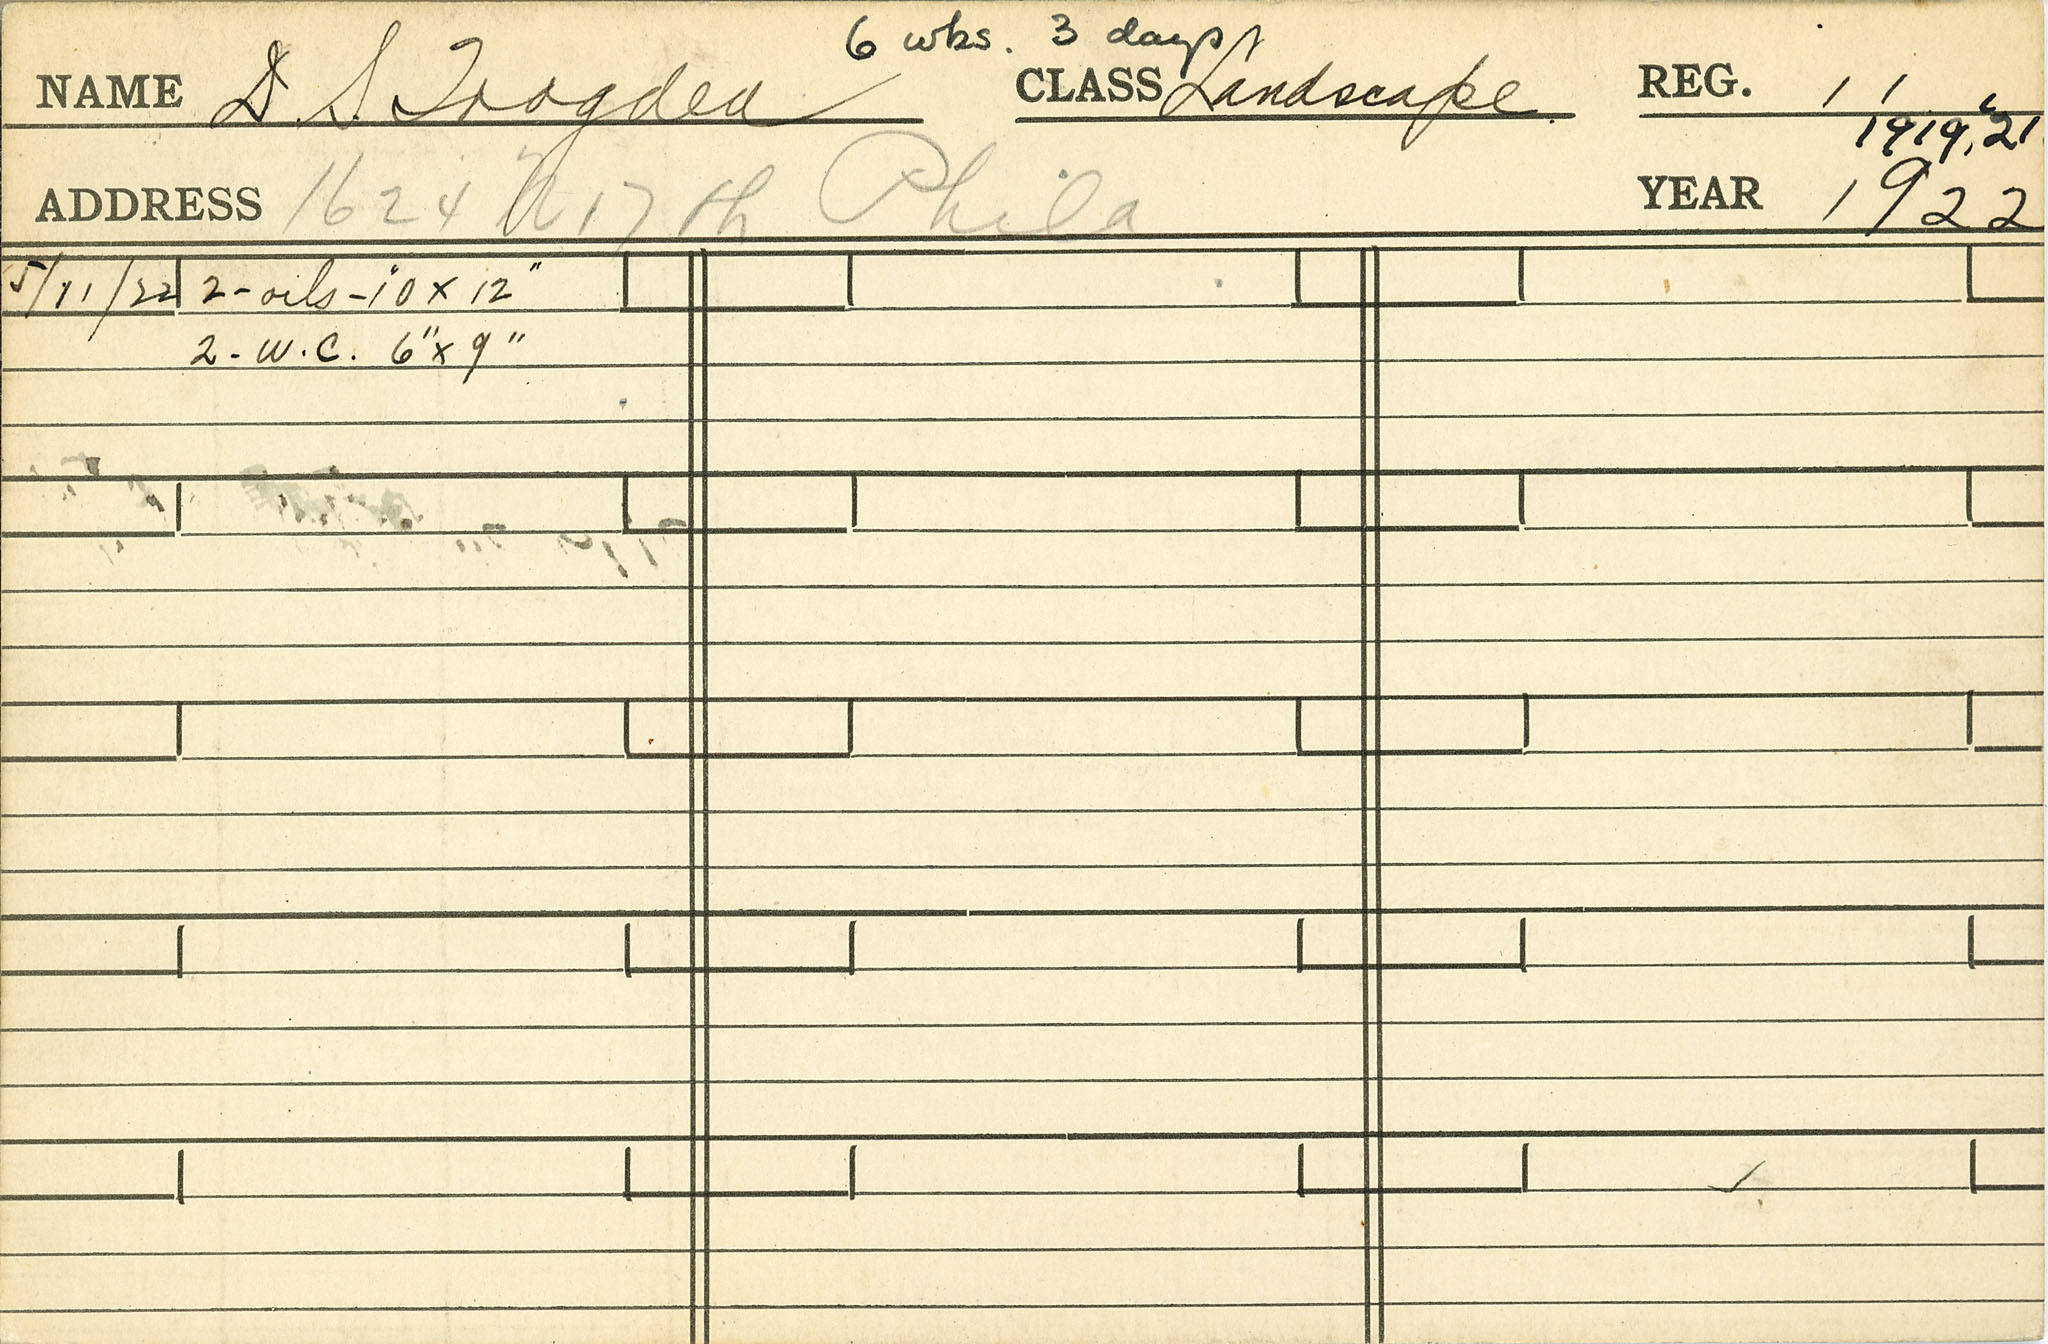 6 wks. 3 days
NAME D. S. Trogden CLASS Landscape. REG. 11
1919, 21
ADDRESS 1624 N 17th Phila YEAR 1922
5/11/22 2-oils-10 x 12"
2-W.C. 6"x9"